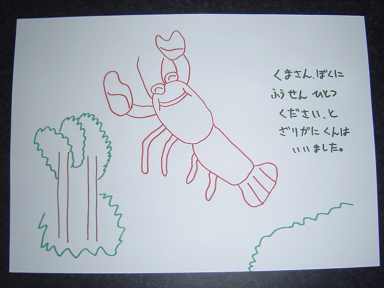 くまさん、ぼくに
ふうせん ひとつ
ください、と
ざりがに くんは
いいました。